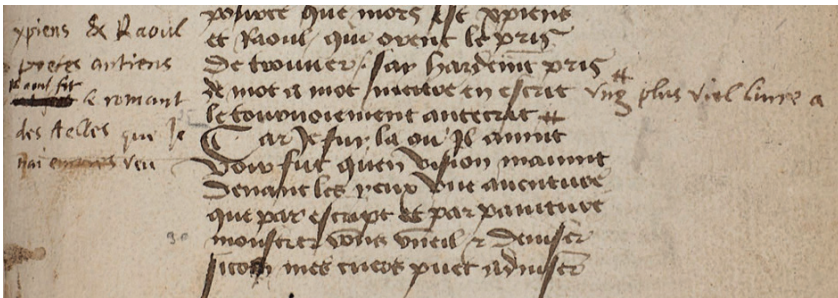 xpiens & Raoul
poetes antiens
Raoul fit
le romant
des Aelles que Je
nai veu
pource que mors est xpiens
et Raoul qui orent le pris
De trouuer / Jay hardemt pris
de mot a mot mettre en escrit
le tournoiement antecrit
Car Je fus la ou Jl auint
Voir fut quen Vision mauint
Deuant les yeux Vne auenture
que par escript et par painture
monstrer Vous Vueil & Deuiser
sicom mes cuers puet aduiser
Vng plus Viel liure a